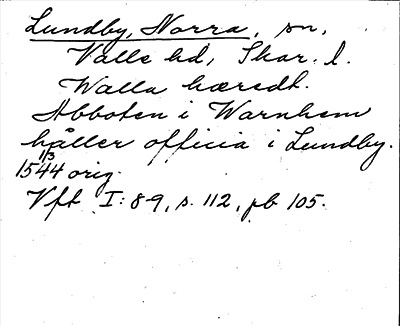 Lundby, Norra, sn,
Valle hd, Skar. l.
Walla hæredt.
Abboten i Warnhem
håller officia i Lundby.
1544 1/3 orig.
Vft I: 8-9, s. 112, pb 105.